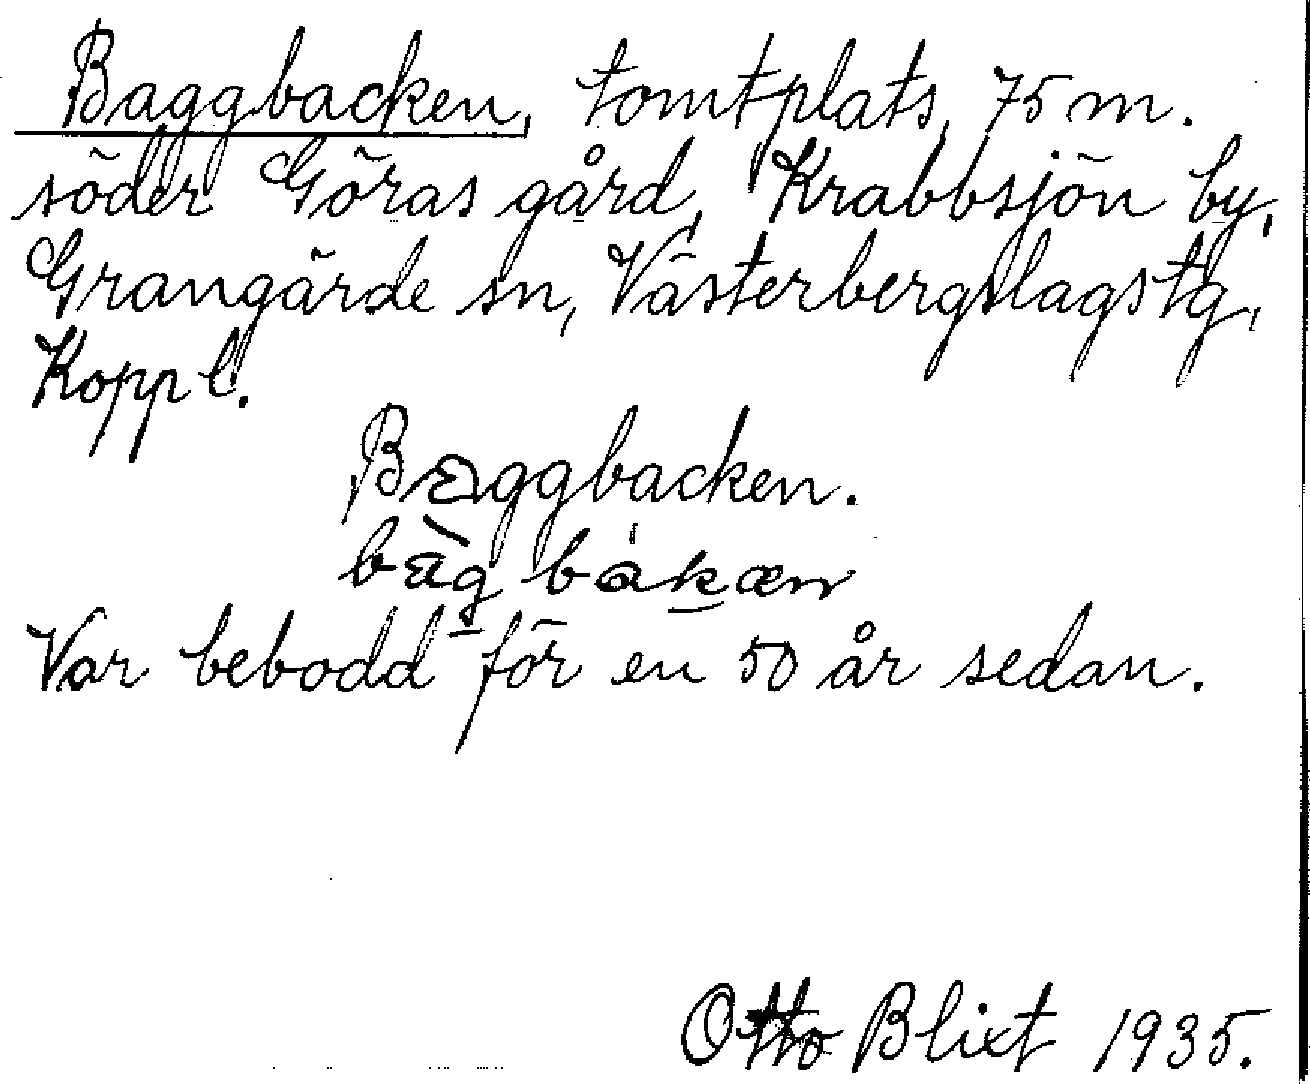 Baggbacken, tomtplats, 75 m.
söder Göras gård, Krabbsjön by,
Grangärde sn, Västerbergslagstg,
Koppl.
Baggbacken.
bàg bakæn
Var bebodd för en 50 år sedan.
Otto Blixt 1935.